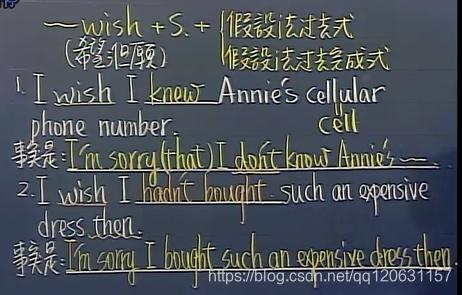 ~wish + S. + { 假設法过去式
(希望但願) 假設法过去完成式
1. I wish I knew Annie's cellular
phone number. cell
事实是: I'm sorry (that) I don't know Annie's ~.
2. I wish I hadn't bought such an expensive
dress then.
事实是: I'm sorry I bought such an expensive dress then.
https://blog.csdn.net/qq120631157